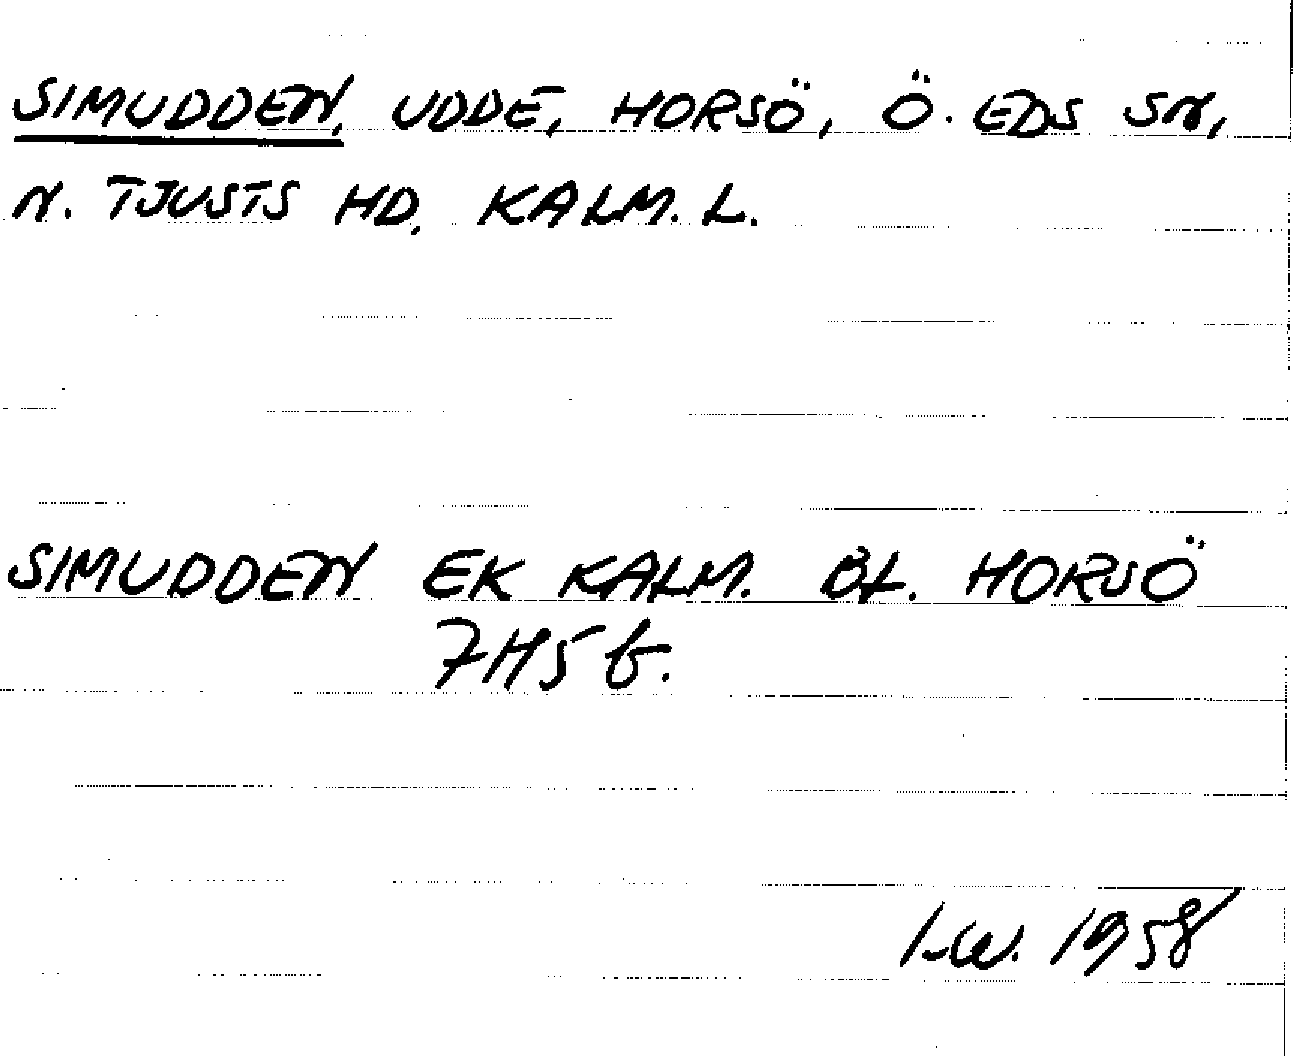 SIMUDDEN, UDDE, HORSÖ, Ö. EDS SN,
N. TJUSTS HD, KALM. L.
SIMUDDEN EK KALM. BL. HORSÖ
7H5b.
I-W. 1958